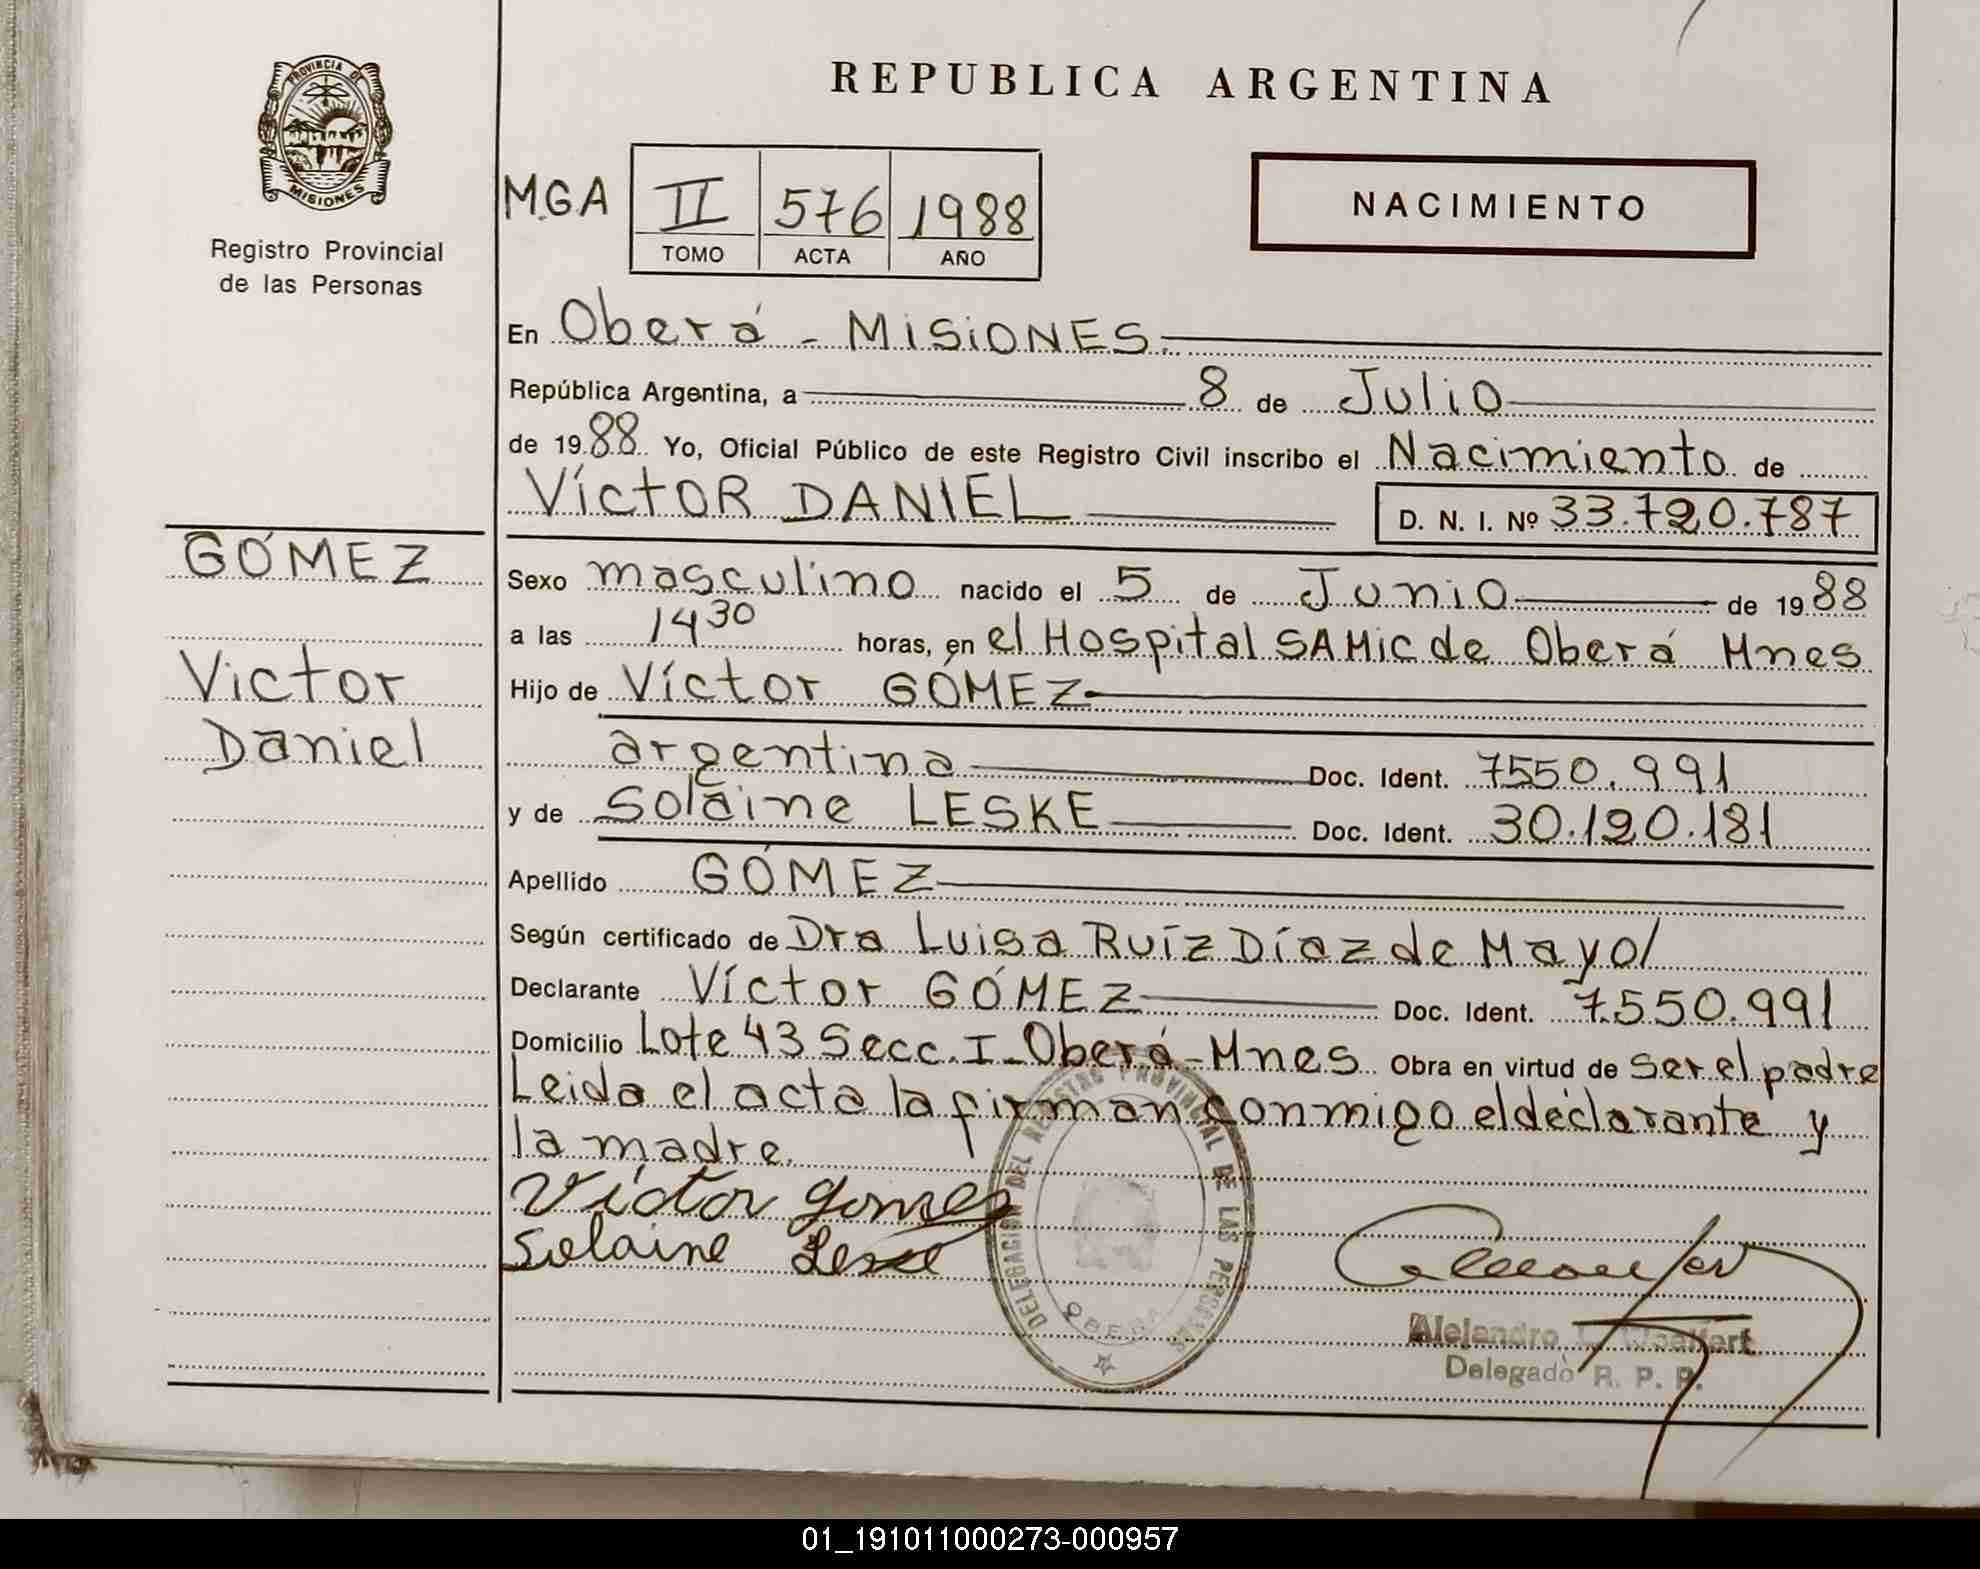 PROVINCIA DE
MISIONES
Registro Provincial
de las Personas
REPUBLICA ARGENTINA
M.G.A
II 576 1988
TOMO ACTA AÑO
NACIMIENTO
En Oberá - MISIONES.
República Argentina, a 8 de Julio
de 1988 Yo, Oficial Público de este Registro Civil inscribo el Nacimiento de
Víctor DANIEL
D. N. I. Nº 33.720.787
GÓMEZ
Victor
Daniel
Sexo masculino nacido el 5 de Junio de 1988
a las 14 30 horas, en el Hospital SAMic de Oberá Mnes
Hijo de Víctor GÓMEZ
argentina Doc. Ident. 7550.991
y de Solaine LESKE Doc. Ident. 30.120.181
Apellido GÓMEZ
Según certificado de Dra Luisa Ruíz Díaz de Mayol
Declarante Víctor GÓMEZ Doc. Ident. 7.550.991
Domicilio Lote 43 Secc. I - Oberá - Mnes Obra en virtud de ser el padre
Leida el acta la firman conmigo el declarante y
la madre.
Victor gomes
Solaine Leske
DELEGACION DEL REGISTRO PROVINCIAL DE LAS PERSONAS
OBERA
Alejandro
Delegado R. P. P.
01_191011000273-000957